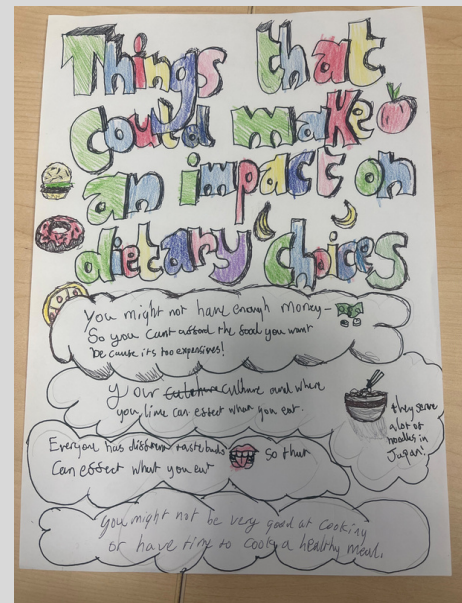 Things that
could make
an impact on
dietary choices
You might not have enough money-
So you cant afford the food you want
because its too expensives!
Your culture and where
you live can effect what you eat.
they serve
a lot of
noodles in
Japan!
Everyone has different tastebuds so that
Can effect what you eat
You might not be very good at cooking
or have time to cook a healthy meal.